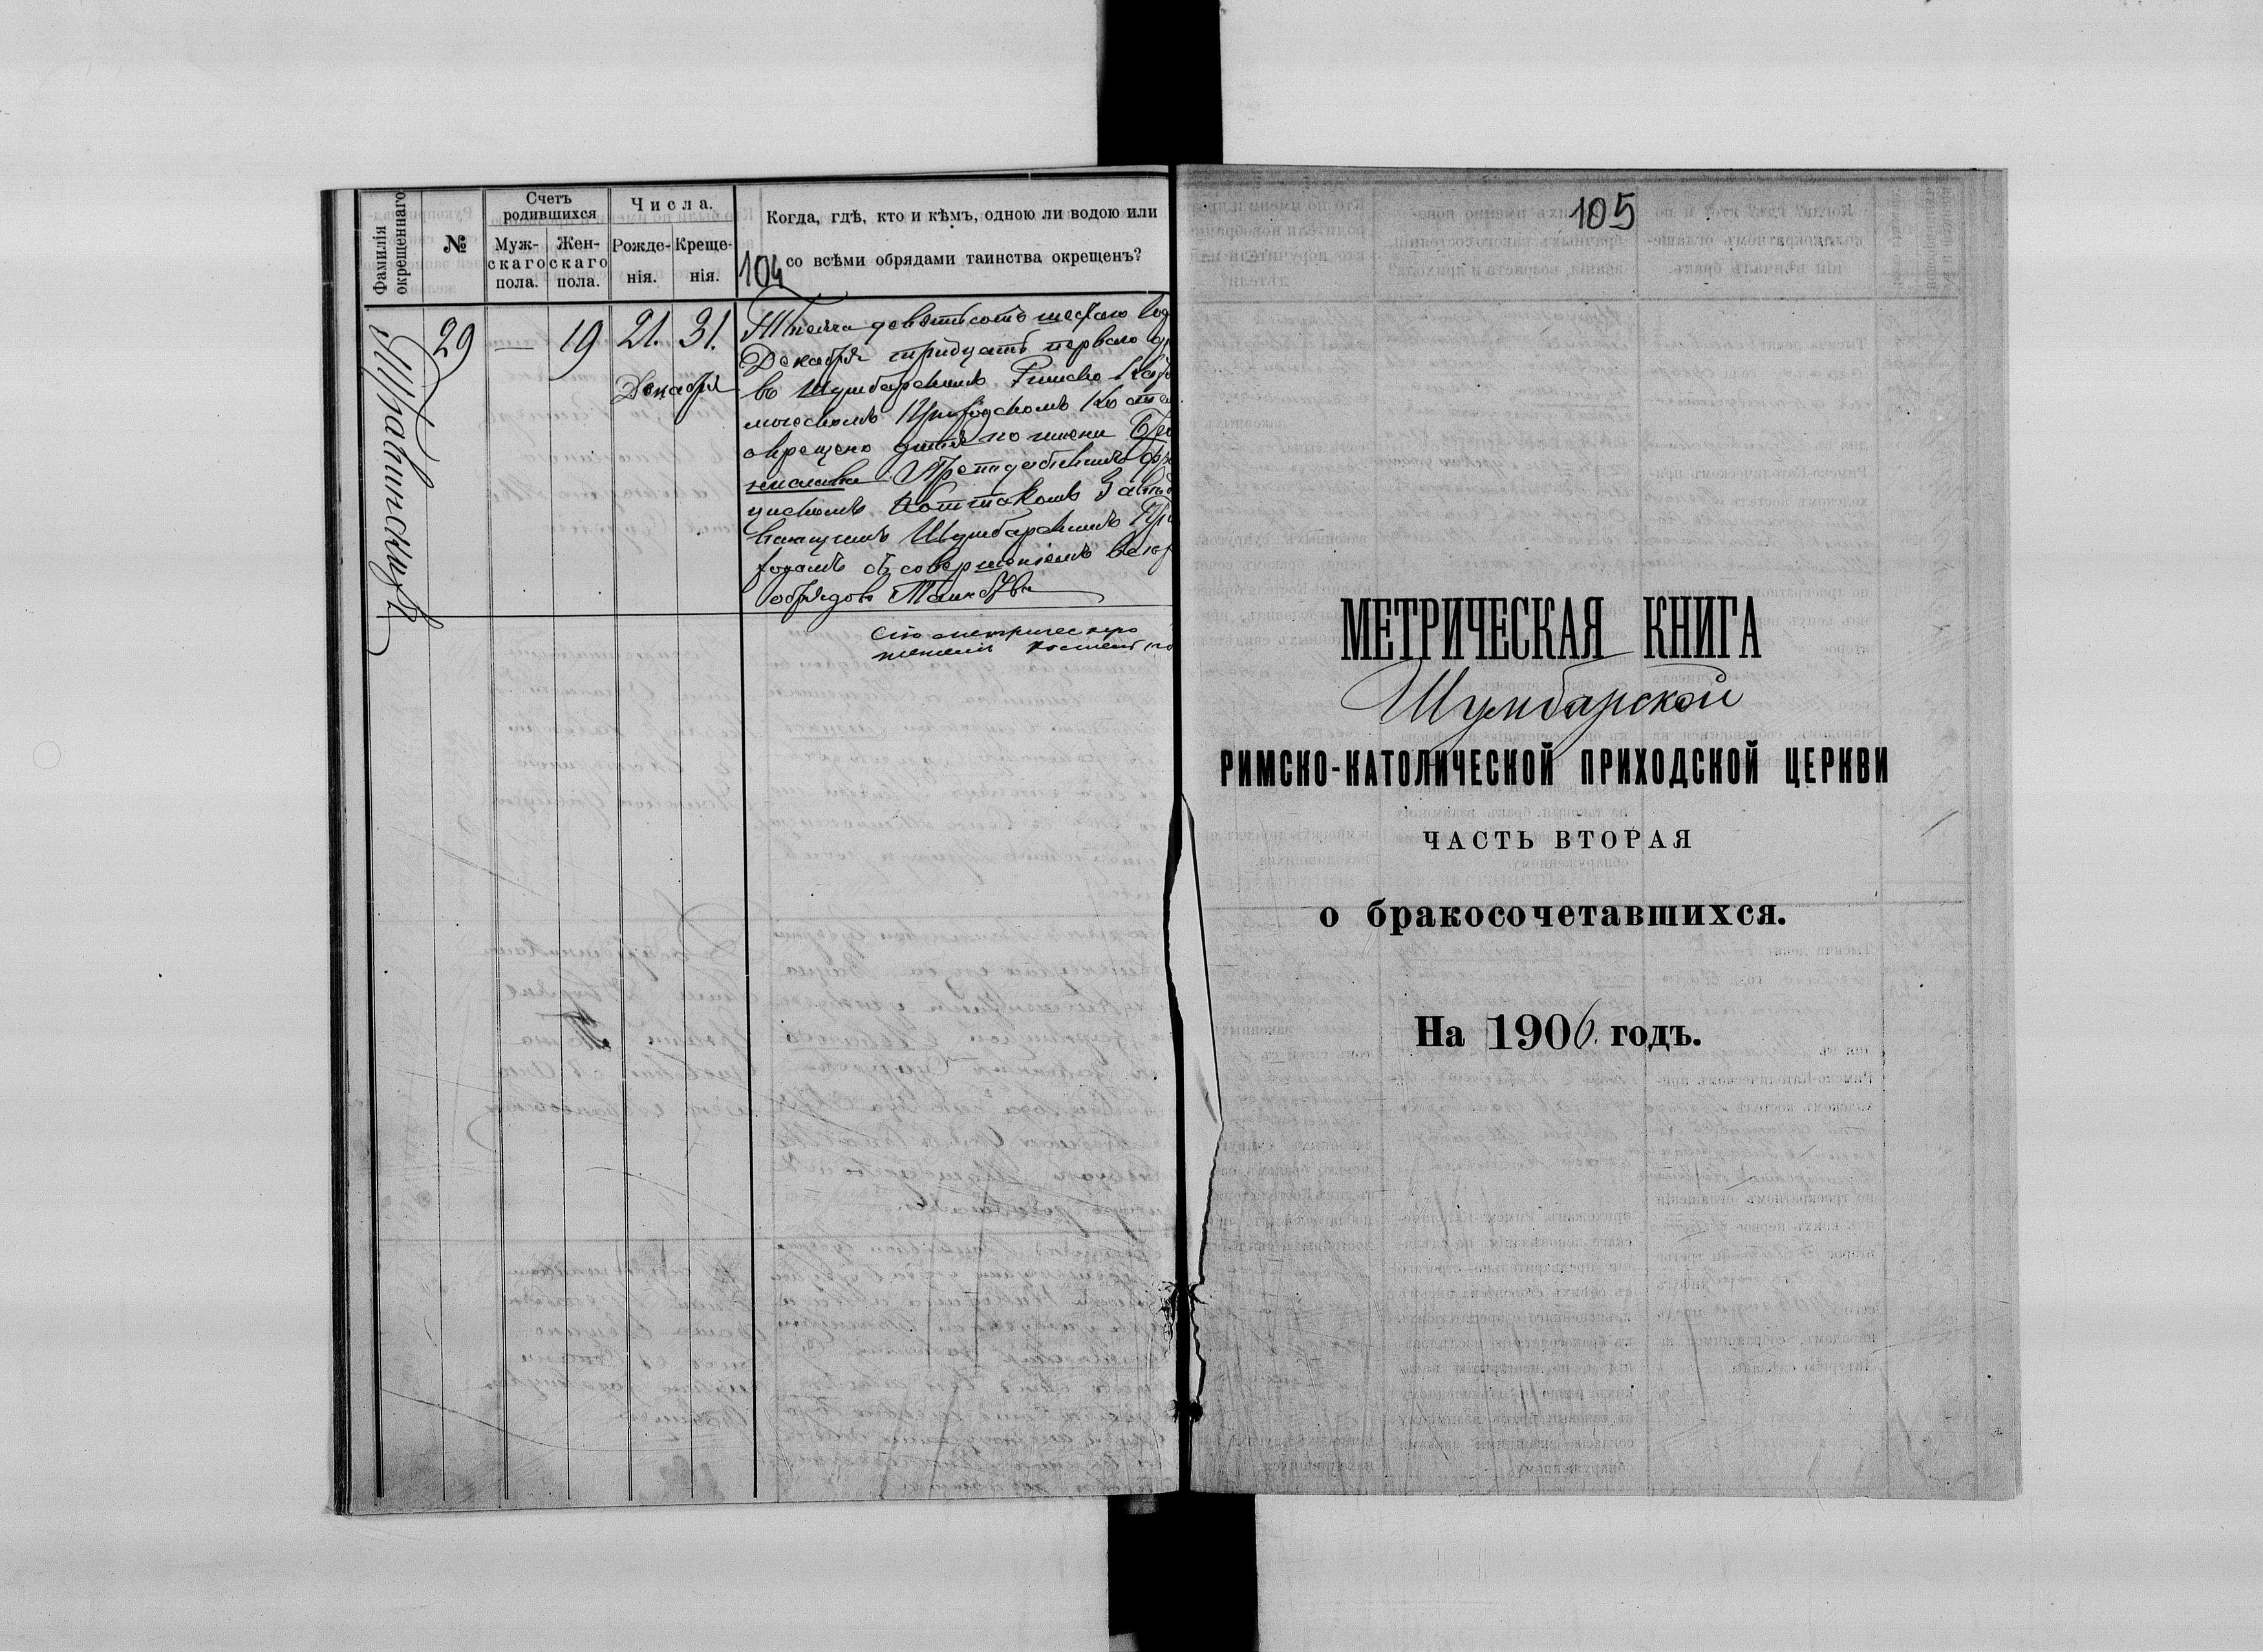 Фамилія окрещеннаго
№
Счетъ родившихся
Муж-
скаго
пола.
Жен-
скаго
пола.
Числа.
Рожде-
нія.
Креще-
нія.
Когда, гдѣ, кто и кѣмъ, одною ли водою или
со всѣми обрядами таинства окрещенъ?
104
29
—
19
21.
31.
Декабря
Тысяча девятьсотъ шестаго год
Декабря тридцать перваго
въ Шумбарскомъ Римско Като
лическомъ Приходскомъ Косте
окрещено дитя по имени Бро
нислава Преподобнымъ
Заведы
вающимъ Шумбарскимъ При
ходомъ съ совершеніемъ всехъ
обрядовъ Таинства
Сію метрическую
105
МЕТРИЧЕСКАЯ КНИГА
Шумбарской
РИМСКО-КАТОЛИЧЕСКОЙ ПРИХОДСКОЙ ЦЕРКВИ
ЧАСТЬ ВТОРАЯ
о бракосочетавшихся.
На 1906. годъ.